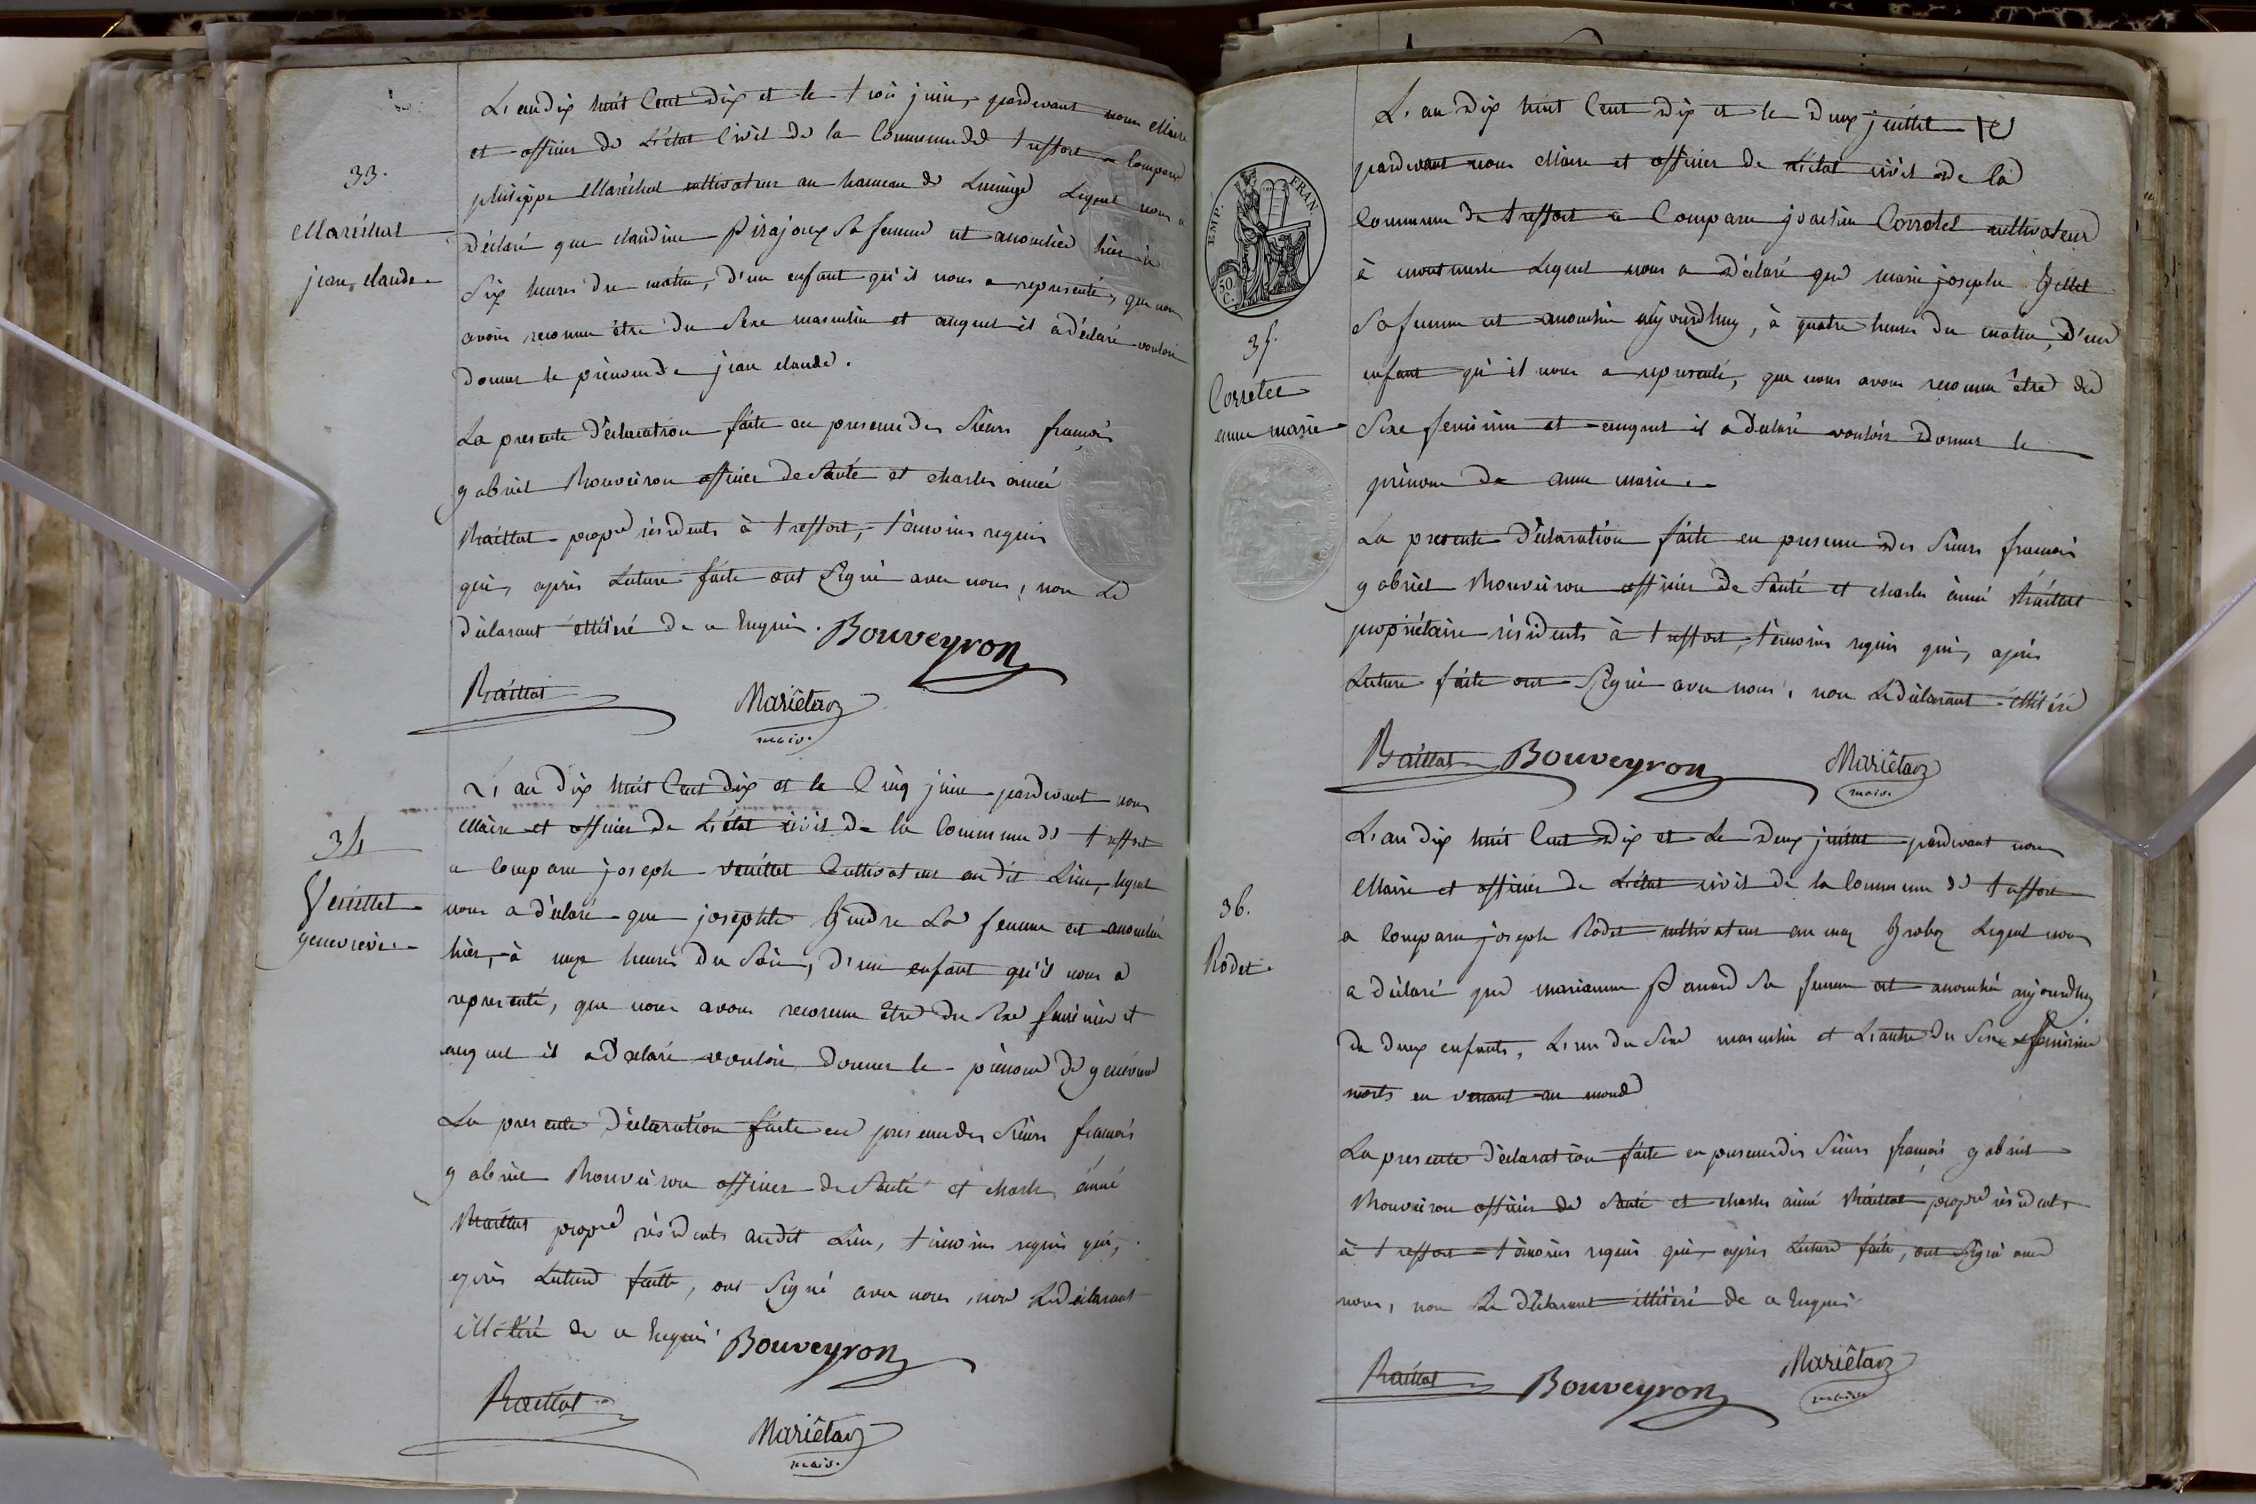 33.
Maréchal
jean claude
L'an dix huit Cent dix et le trois juin, pardevant nous Maire
et officier de L'état Civil de la Commune de treffort a comparu
philippe Maréchal cultivateur au hameau de Lequel nous a
déclaré que claudine pirajoux sa femme est accouchée hier à
Six heures du matin, d'un enfant qu'il nous a representé, que nous
avons reconnu être du Sexe masculin et auquel il a déclaré vouloir
donner le prénom de jean claude.
La presente déclaration faite en presence des Sieurs françois
gabriel Bouveiron officier de Santé et charles aimé
Raillat propre residents à treffort, témoins requis
qui, après Lecture faite ont Signé avec nous, non Le
déclarant illiteré de ce Enquis. Bouveyron
Raillat Mariêtan
maire
34
Veuillet
genevieve
L'an dix huit Cent dix et le Cinq juin pardevant nous
Maire et officier de L'état civil de la Commune de treffort
a comparu joseph veuillet Cultivateur au dit Lieu, lequel
nous a déclaré que josephte Gindre Sa femme est accouchée
hier, à heures du Soir, d'un enfant qu'il nous a
representé, que nous avons reconnu être du Sexe feminin et
auquel il a declaré vouloir donner le prénom de genevieve
La presente déclaration faite en presence des Sieurs françois
gabriel Bouveiron officier de Santé et charles aimé
Raillat propre résidents audit Lieu, témoins requis qui,
après Lecture faitte, ont Signé avec nous, non Le déclarant
illiteré de ce Enquis Bouveyron
Raillat
Mariêtan
maire
L'an dix huit Cent dix et le deux juillet
pardevant nous Maire et officier de L'état civil de la
Commune de treffort a Comparu joachim Corretel cultivateur
à montmerle Lequel nous a déclaré que marie josephe Gillet
Sa femme est accouchée aujourdhuy, à quatre heures du matin, d'un
enfant qu'il nous a representé, que nous avons reconnu être du
Sexe feminin et auquel il a declaré vouloir donner le
prénom de anne marie
EMP. FRAN.
50 C.
35.
Corretel
anne marie
La presente Déclaration faite en presence des Sieurs françois
gabriel Bouveiron officier de Santé et charles aimé Raillat
propriétaire résidents à treffort, témoins requis qui, après
Lecture faite ont Signé avec nous, non Le déclarant illiteré
Raillat Bouveyron Mariêtan
maire
36.
Rodet
L'an dix huit Cent dix et Le deux juillet pardevant nous
Maire et officier de L'état civil de la Commune de treffort
a comparu joseph Rodet cultivateur au Lequel nous
a déclaré que marianne Panard Sa femme est accouchée aujourdhuy
de deux enfants, L'un du Sexe masculin et L'autre du Sexe feminin
morts en venant au monde
La presente déclaration faite en presence des Sieurs françois gabriel
Bouveiron officier de Santé et charles aimé Raillat propre résidents
à treffort témoins requis qui, après Lecture faite, ont Signé avec
nous, non Le déclarant illiteré de ce Enquis
Raillat Bouveyron Mariêtan
maire